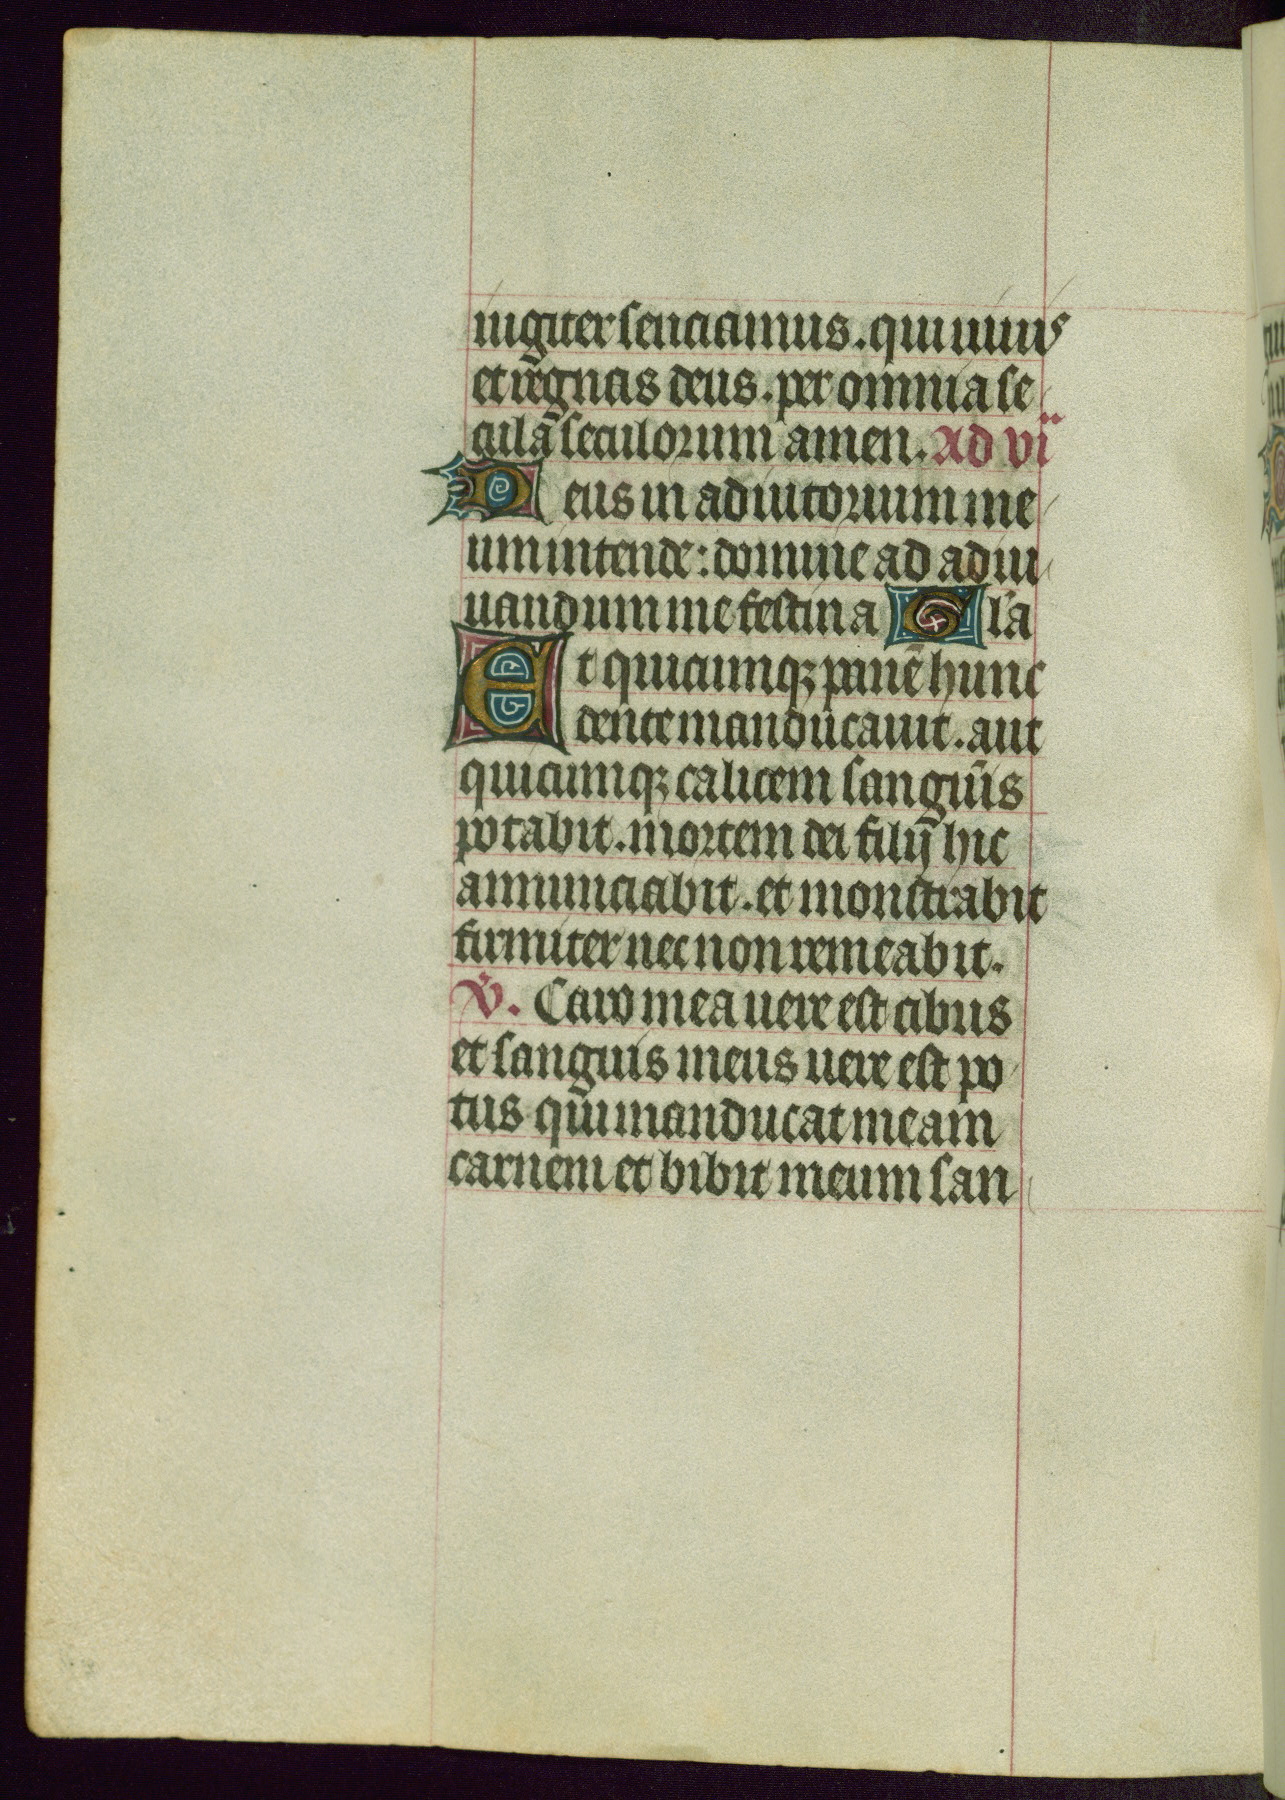 iugiter senciamus. qui uiuis
et regnas deus. per omnia se
cula seculorum amen. Ad vi
Deus in adiutorium me
um intende: domine ad adiu
uandum me festina Gl'a
Et quicumqꝫ panē hunc
dente manducauit. aut
quicumqꝫ calicem sangu̅is
potabit. mortem dei filij hic
annunciabit. et monstrabit
firmiter nec non remeabit.
V̉. Caro mea uere est cibus
et sanguis meus uere est po
tus qui manducat meam
carnem et bibit meum san